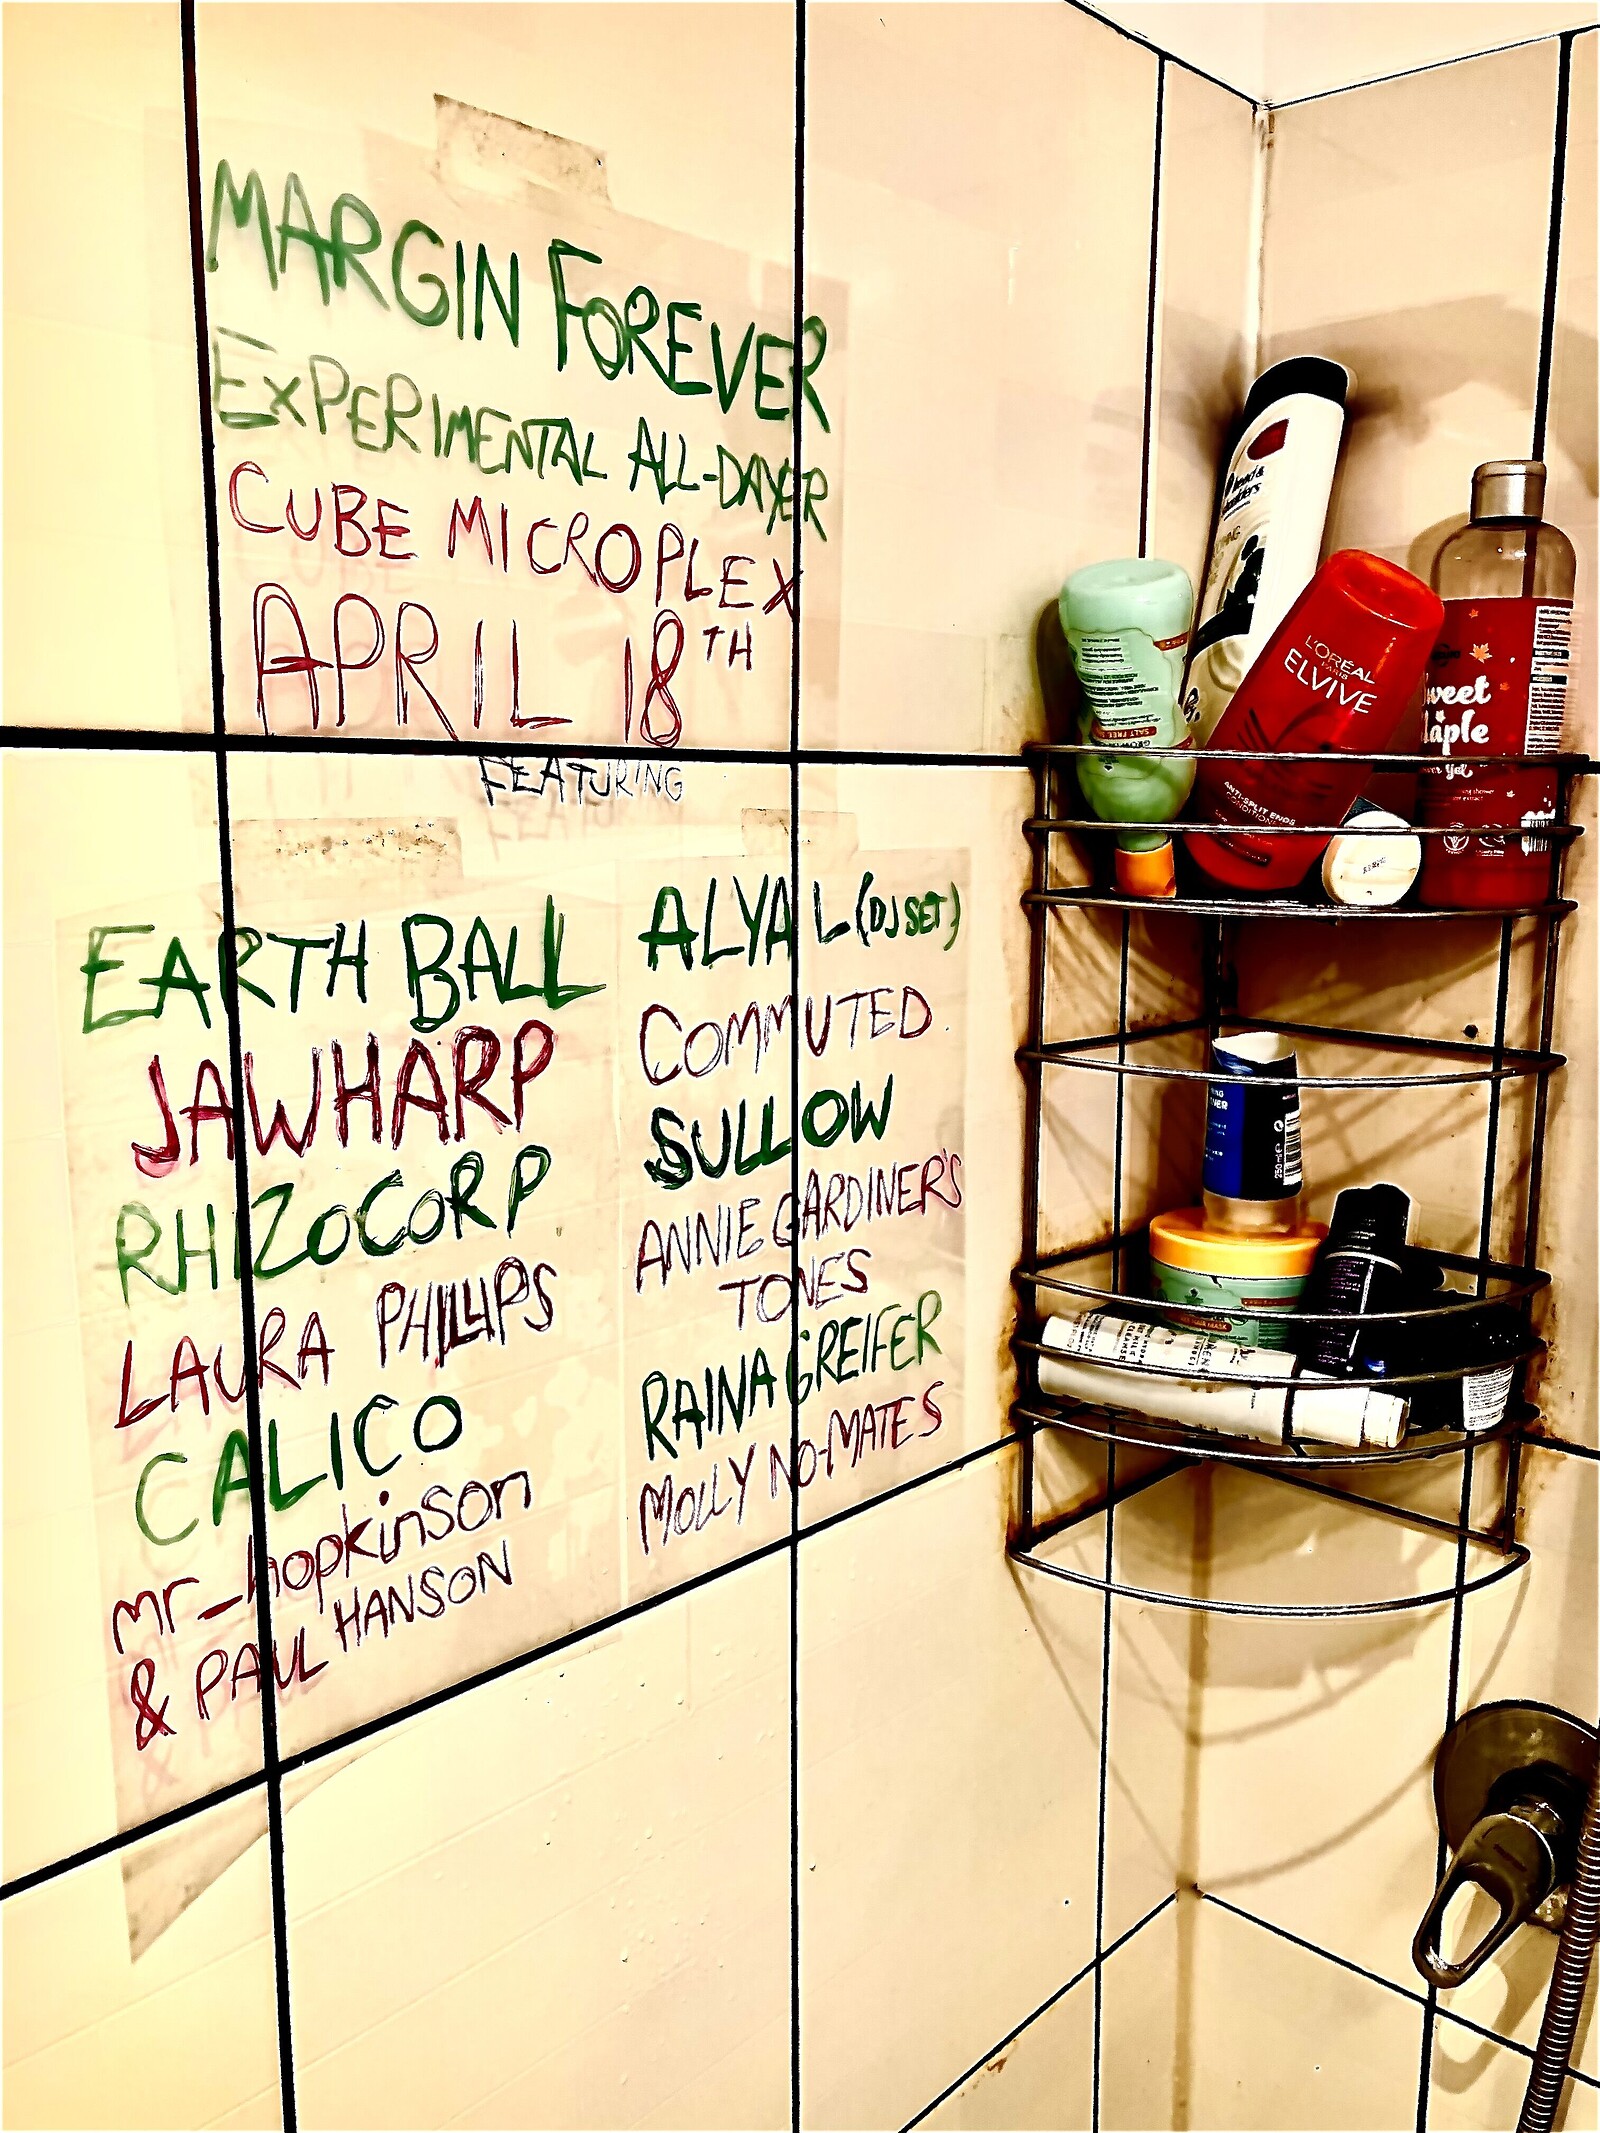 MARGIN FOREVER
EXPERIMENTAL ALL-DAYER
CUBE MICROPLEX
APRIL 18TH
FEATURING
EARTH BALL
JAWHARP
RHIZOCORP
LAURA PHILLIPS
CALICO
mr_hopkinson
& PAUL HANSON
ALYA L (DJ SET)
COMMUTED.
SULLOW
ANNIE GARDINER'S
TONES
RAINA GREIFER
MOLLY NO-MATES
head &
shoulders
L'ORÉAL
PARIS
ELVIVE
ANTI-SPLIT ENDS
CONDITIONER
weet
aple
250 ml e
HAIR MASK